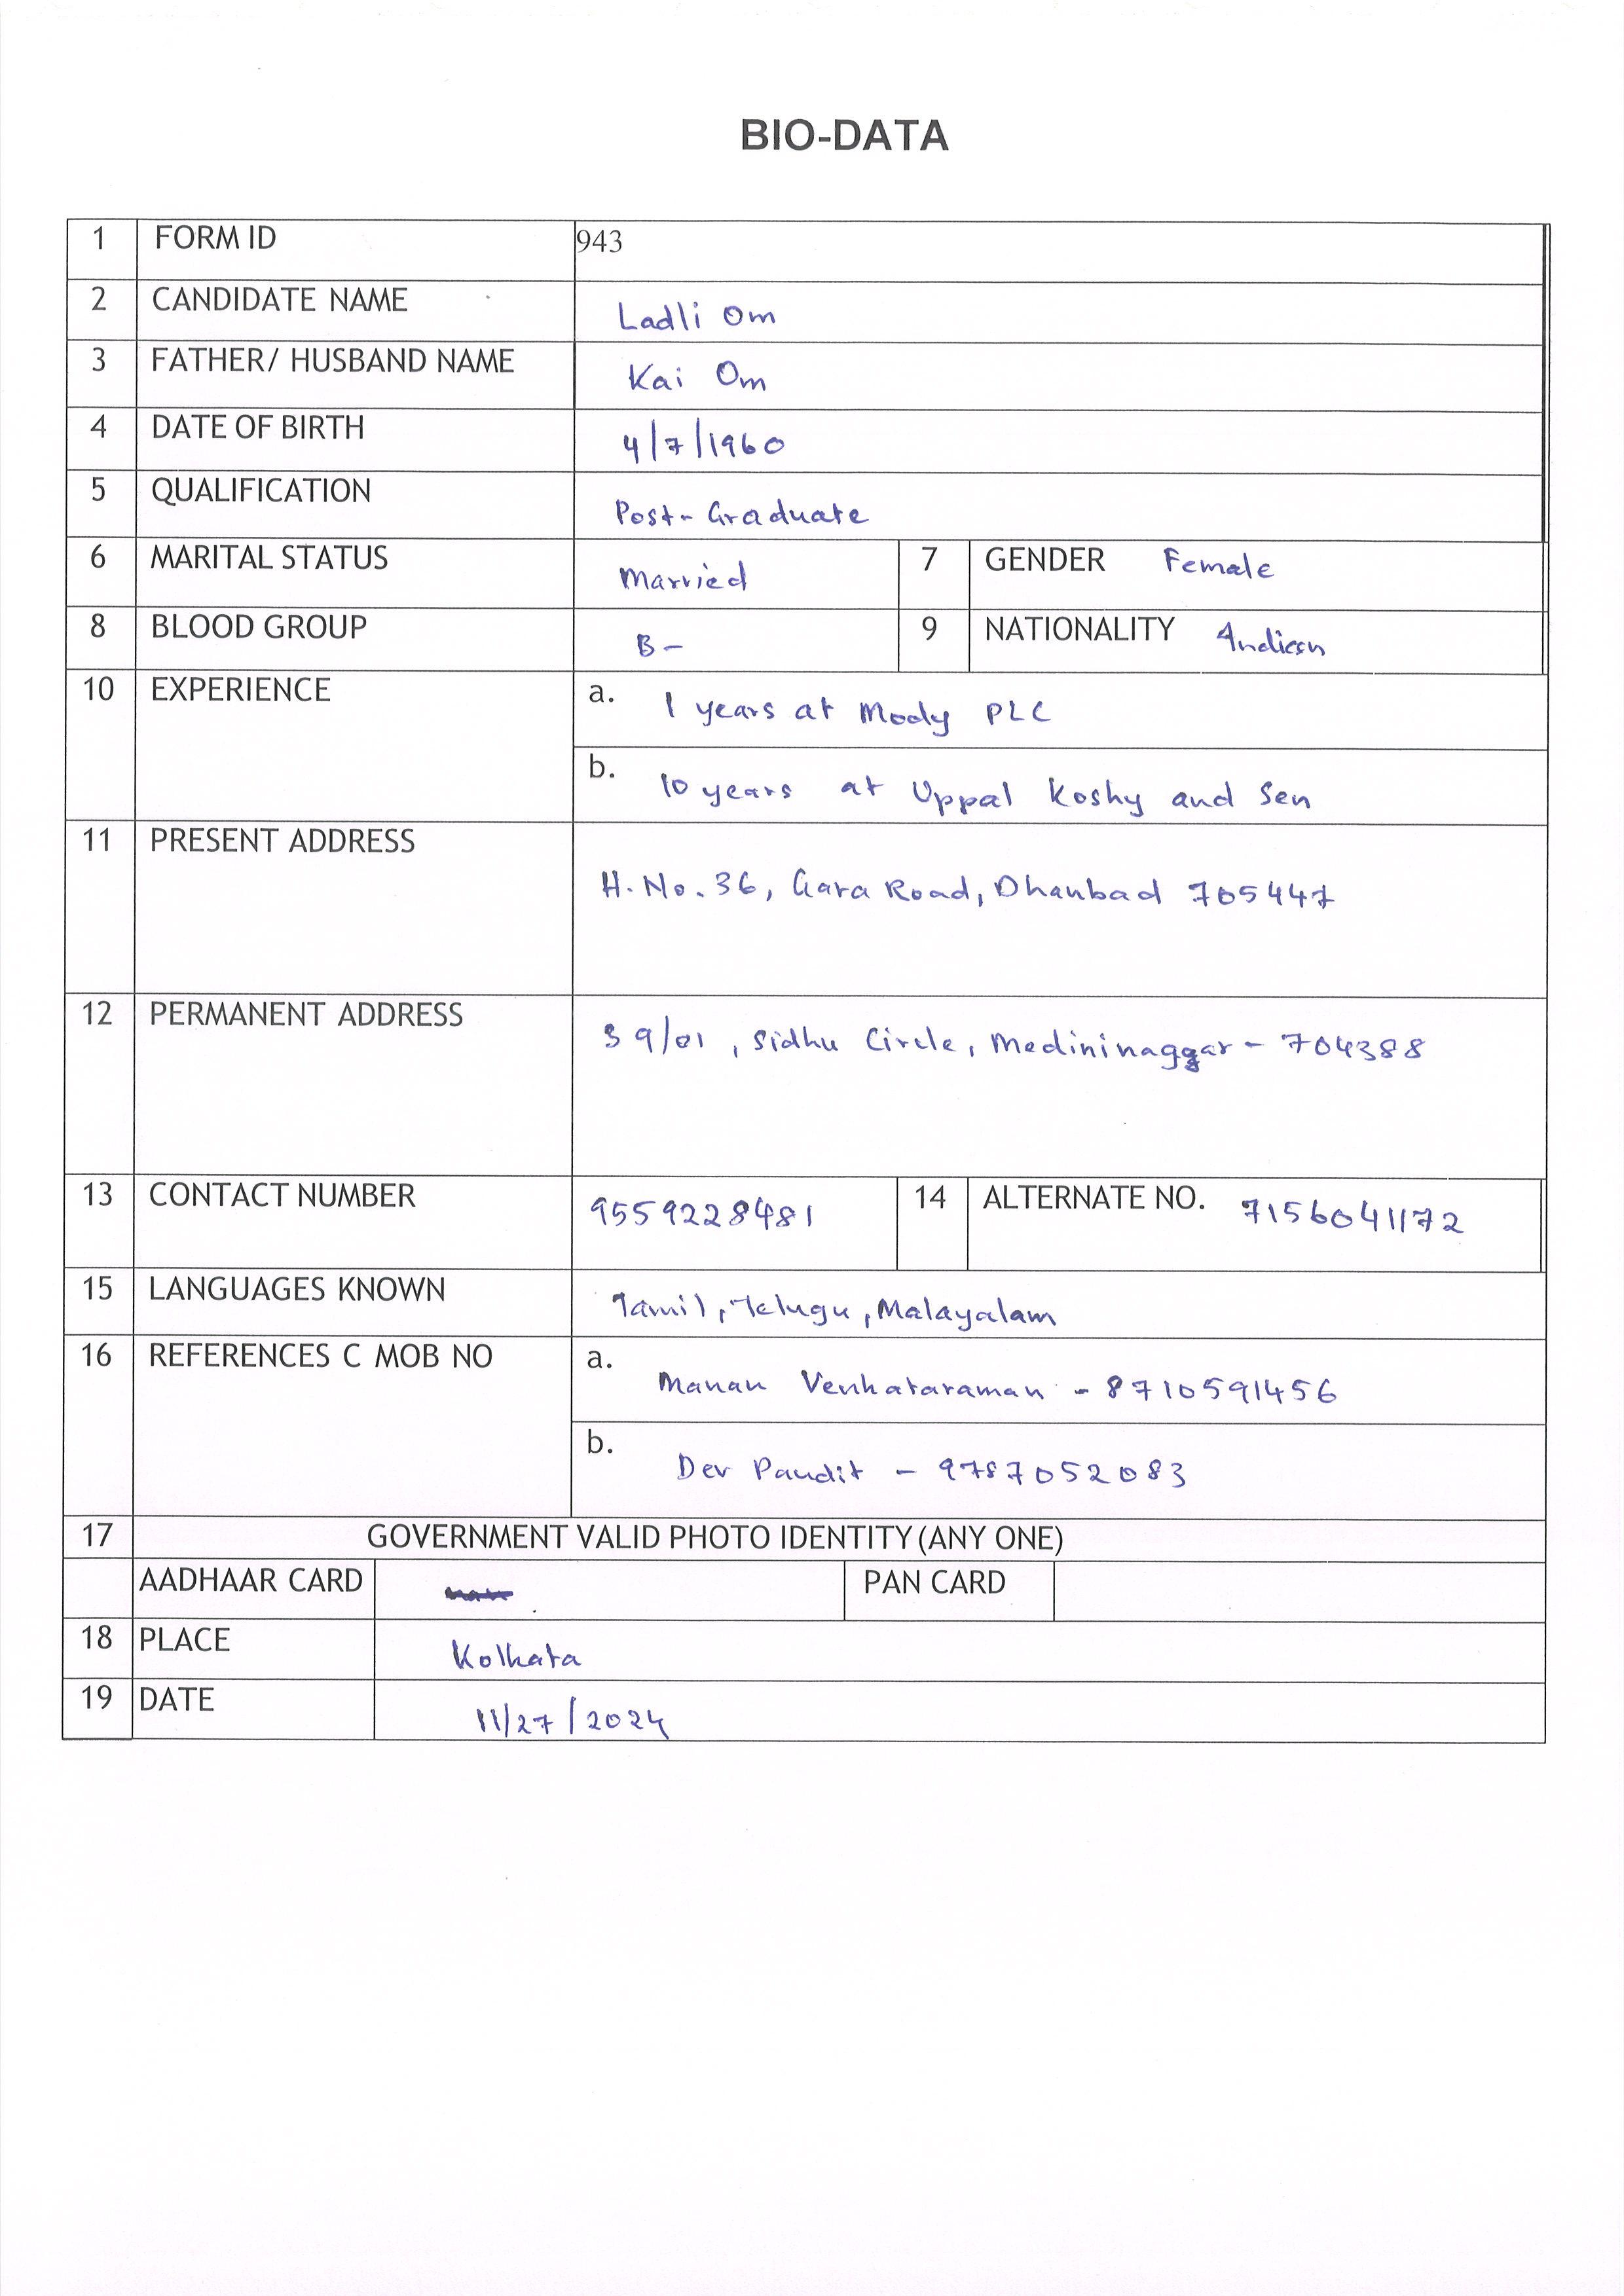 BIO-DATA
1 FORM ID 943
2 CANDIDATE NAME Ladli Om
3 FATHER/ HUSBAND NAME Kai Om
4 DATE OF BIRTH 4/7/1960
5 QUALIFICATION Post-Graduate
6 MARITAL STATUS Married 7 GENDER Female
8 BLOOD GROUP B- 9 NATIONALITY Indian
10 EXPERIENCE a. 1 years at Mody PLC
b. 10 years at Uppal Koshy and Sen
11 PRESENT ADDRESS
H.No.36, Gara Road, Dhanbad 705447
12 PERMANENT ADDRESS
39/01, Sidhu Circle, Medininaggar - 704388
13 CONTACT NUMBER 9559228481 14 ALTERNATE NO. 7156041172
15 LANGUAGES KNOWN Tamil, Telugu, Malayalam
16 REFERENCES C MOB NO a. Manan Venkataraman - 8710591456
b. Dev Pandit - 9787052083
17 GOVERNMENT VALID PHOTO IDENTITY (ANY ONE)
AADHAAR CARD PAN CARD
18 PLACE Kolkata
19 DATE 11/27/2024